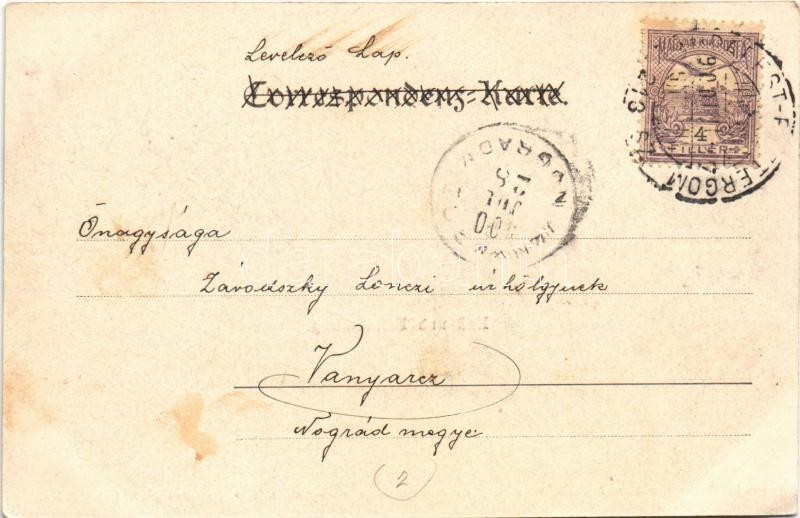 Levelező Lap.
Correspondenz-Karte.
MAGYAR KIR. POSTA
4
FILLÉR
NOGRAD
JUL
Őnagysága
Závodszky Lonczi úrhölgynek
Vanyarcz
Nográd megye
2